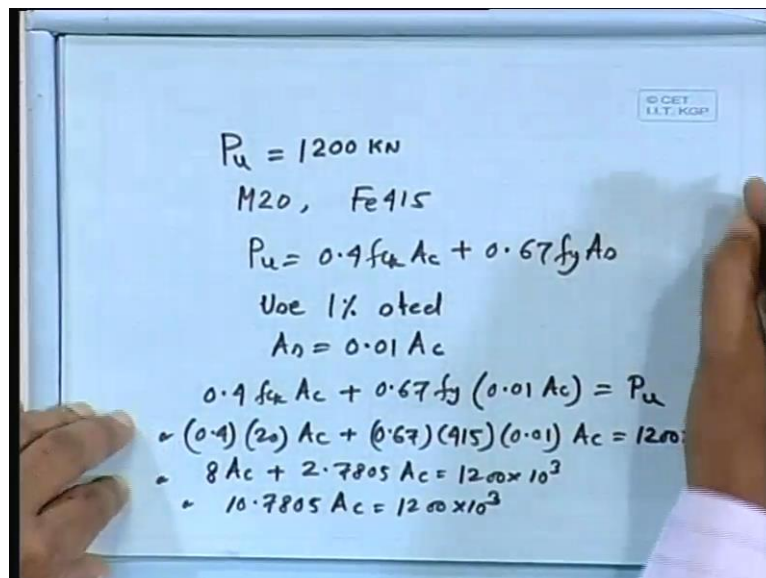 © CET
I.I.T. KGP
Pu = 1200 KN
M20, Fe415
Pu = 0.4 fck Ac + 0.67 fy As
Use 1% steel
As = 0.01 Ac
0.4 fck Ac + 0.67 fy (0.01 Ac) = Pu
(0.4) (20) Ac + (0.67) (415) (0.01) Ac = 1200
8 Ac + 2.7805 Ac = 1200 x 10³
10.7805 Ac = 1200 x 10³